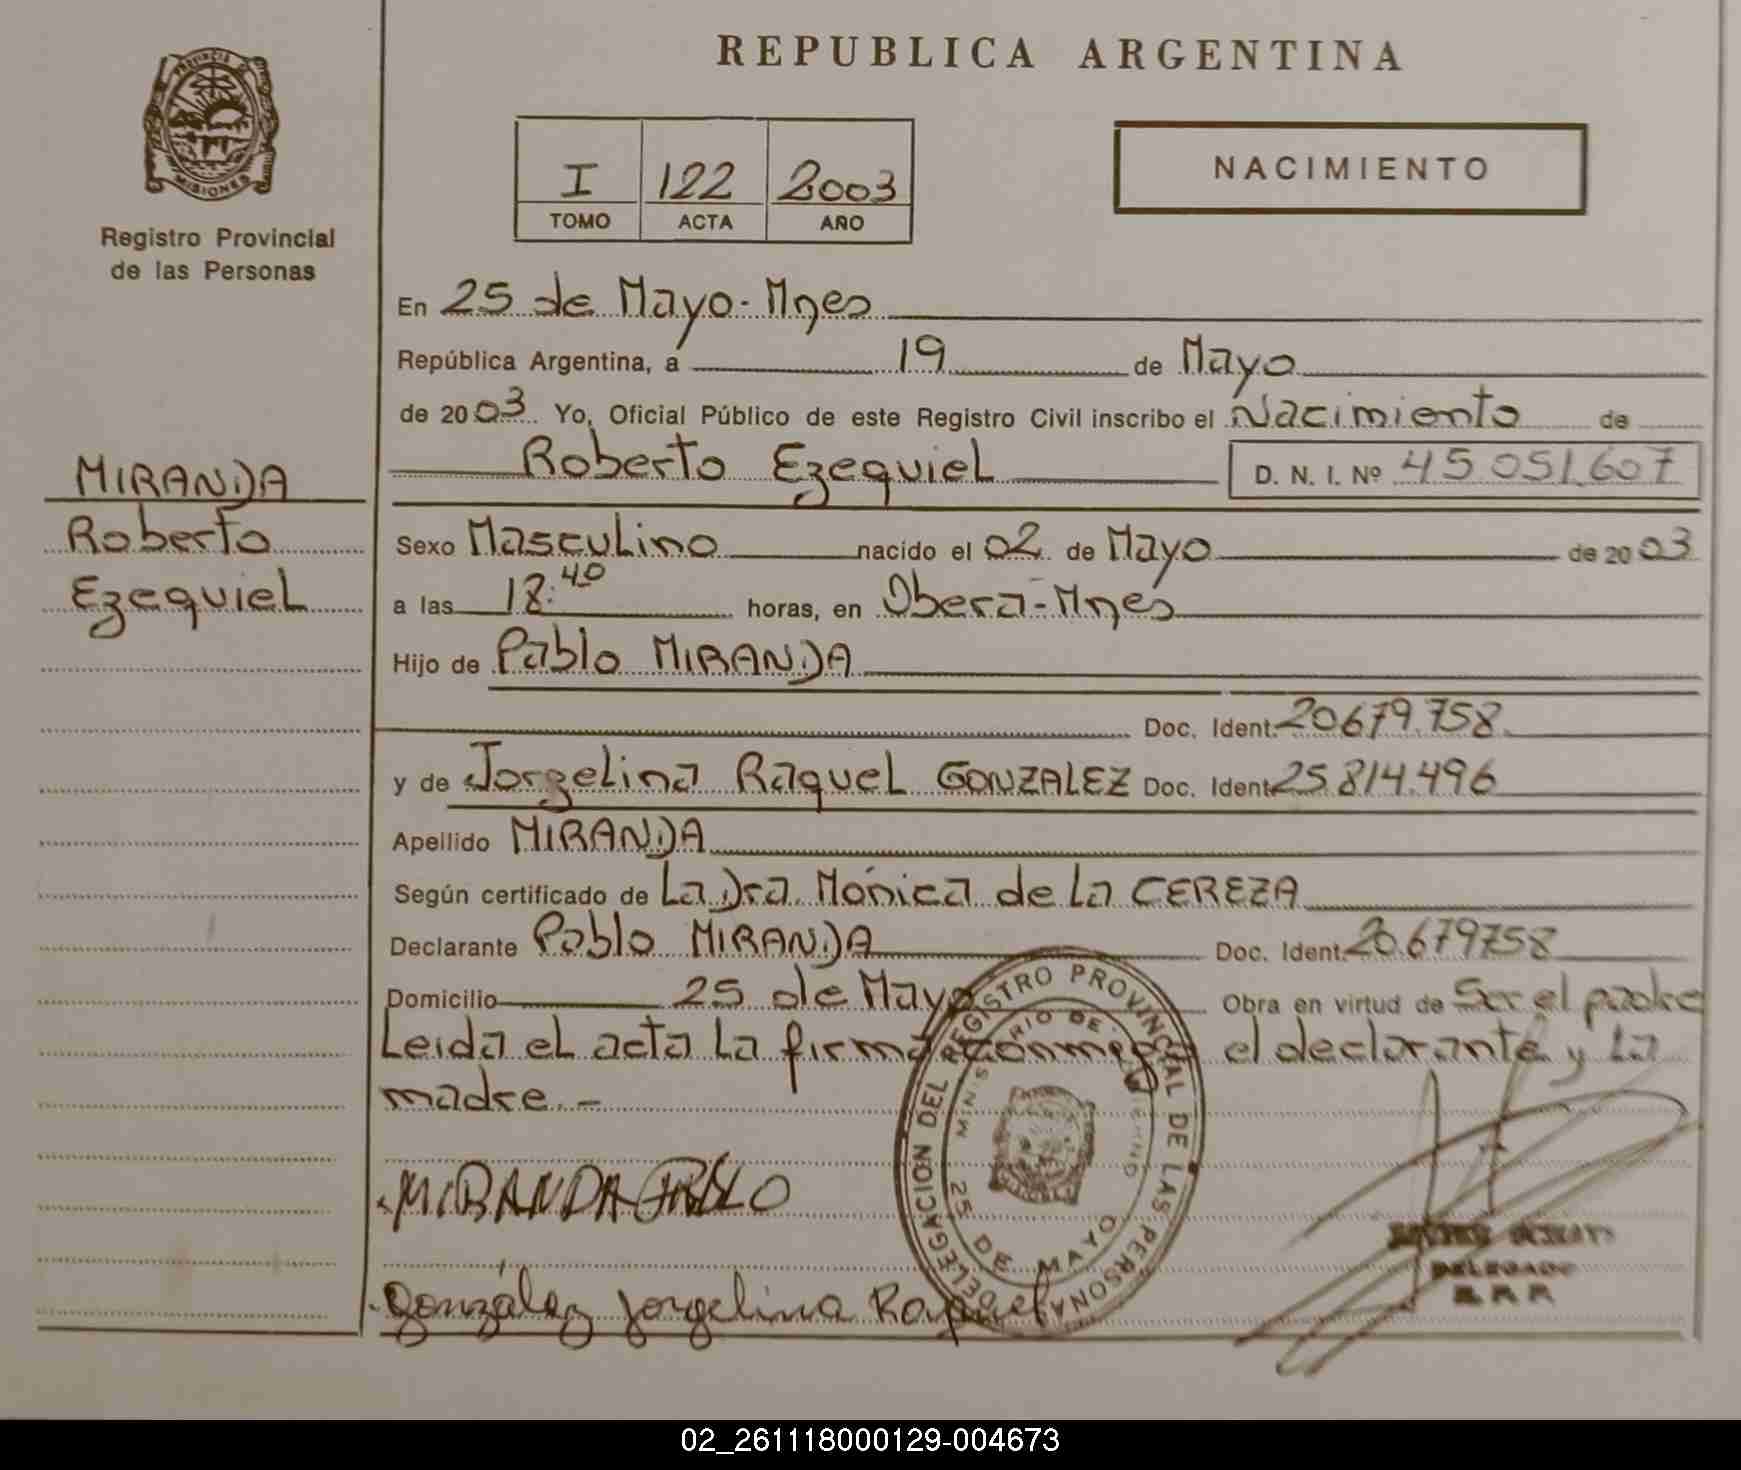 REPUBLICA ARGENTINA
PROVINCIA DE
MISIONES
Registro Provincial
de las Personas
I 122 2003
TOMO ACTA AÑO
NACIMIENTO
MIRANDA
Roberto
Ezequiel
En 25 de Mayo-Mnes
República Argentina, a 19 de Mayo
de 2003 Yo, Oficial Público de este Registro Civil inscribo el Nacimiento de
Roberto Ezequiel D. N. I. Nº 45.051.607
Sexo Masculino nacido el 02 de Mayo de 2003
a las 18:40 horas, en Obera-Mnes
Hijo de Pablo MIRANDA
Doc. Ident. 20679.758
y de Jorgelina Raquel GONZALEZ Doc. Ident. 25.814.496
Apellido MIRANDA
Según certificado de La Dra. Mónica de La CEREZA
Declarante Pablo MIRANDA Doc. Ident. 20.679758
Domicilio 25 de Mayo Obra en virtud de Ser el padre
Leida el acta la firma conmigo el declarante y la
madre.-
MIRANDA PABLO
González Jorgelina Raquel
DELEGACION DEL REGISTRO PROVINCIAL DE LAS PERSONAS
MINISTERIO DE GOBIERNO
25 DE MAYO
DELEGADO
02_261118000129-004673